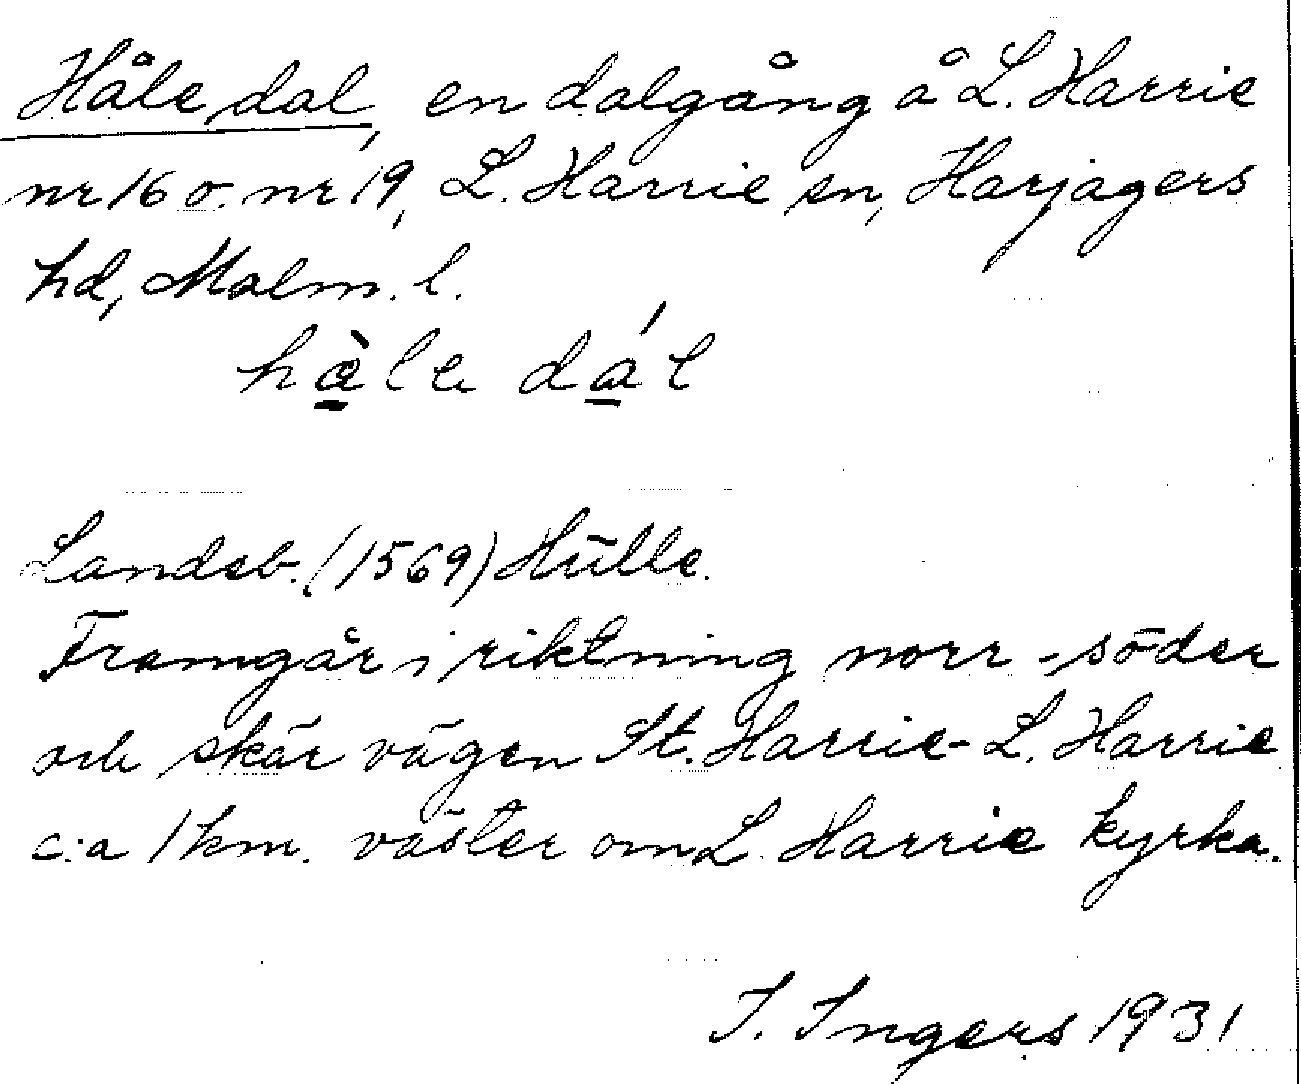 Håle dal, en dalgång å L. Harrie
nr 16 o. nr 19, L. Harrie sn, Harjagers
hd, Malm. l.
hàle dál
Landeb. (1569) Hülle.
Framgår i riktning norr - söder
och skär vägen St. Harrie - L. Harrie
c:a 1 km. väster om L. Harrie kyrka.
I. Ingers 1931